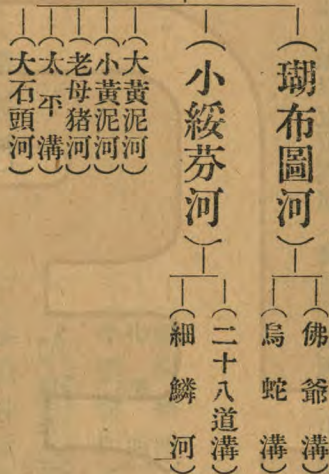 (瑚布圖河)
(佛爺溝)
(烏蛇溝)
(小綏芬河)
(二十八道溝)
(細鱗河)
(大黃泥河)
(小黃泥河)
(老母猪河)
(太平溝)
(大石頭河)